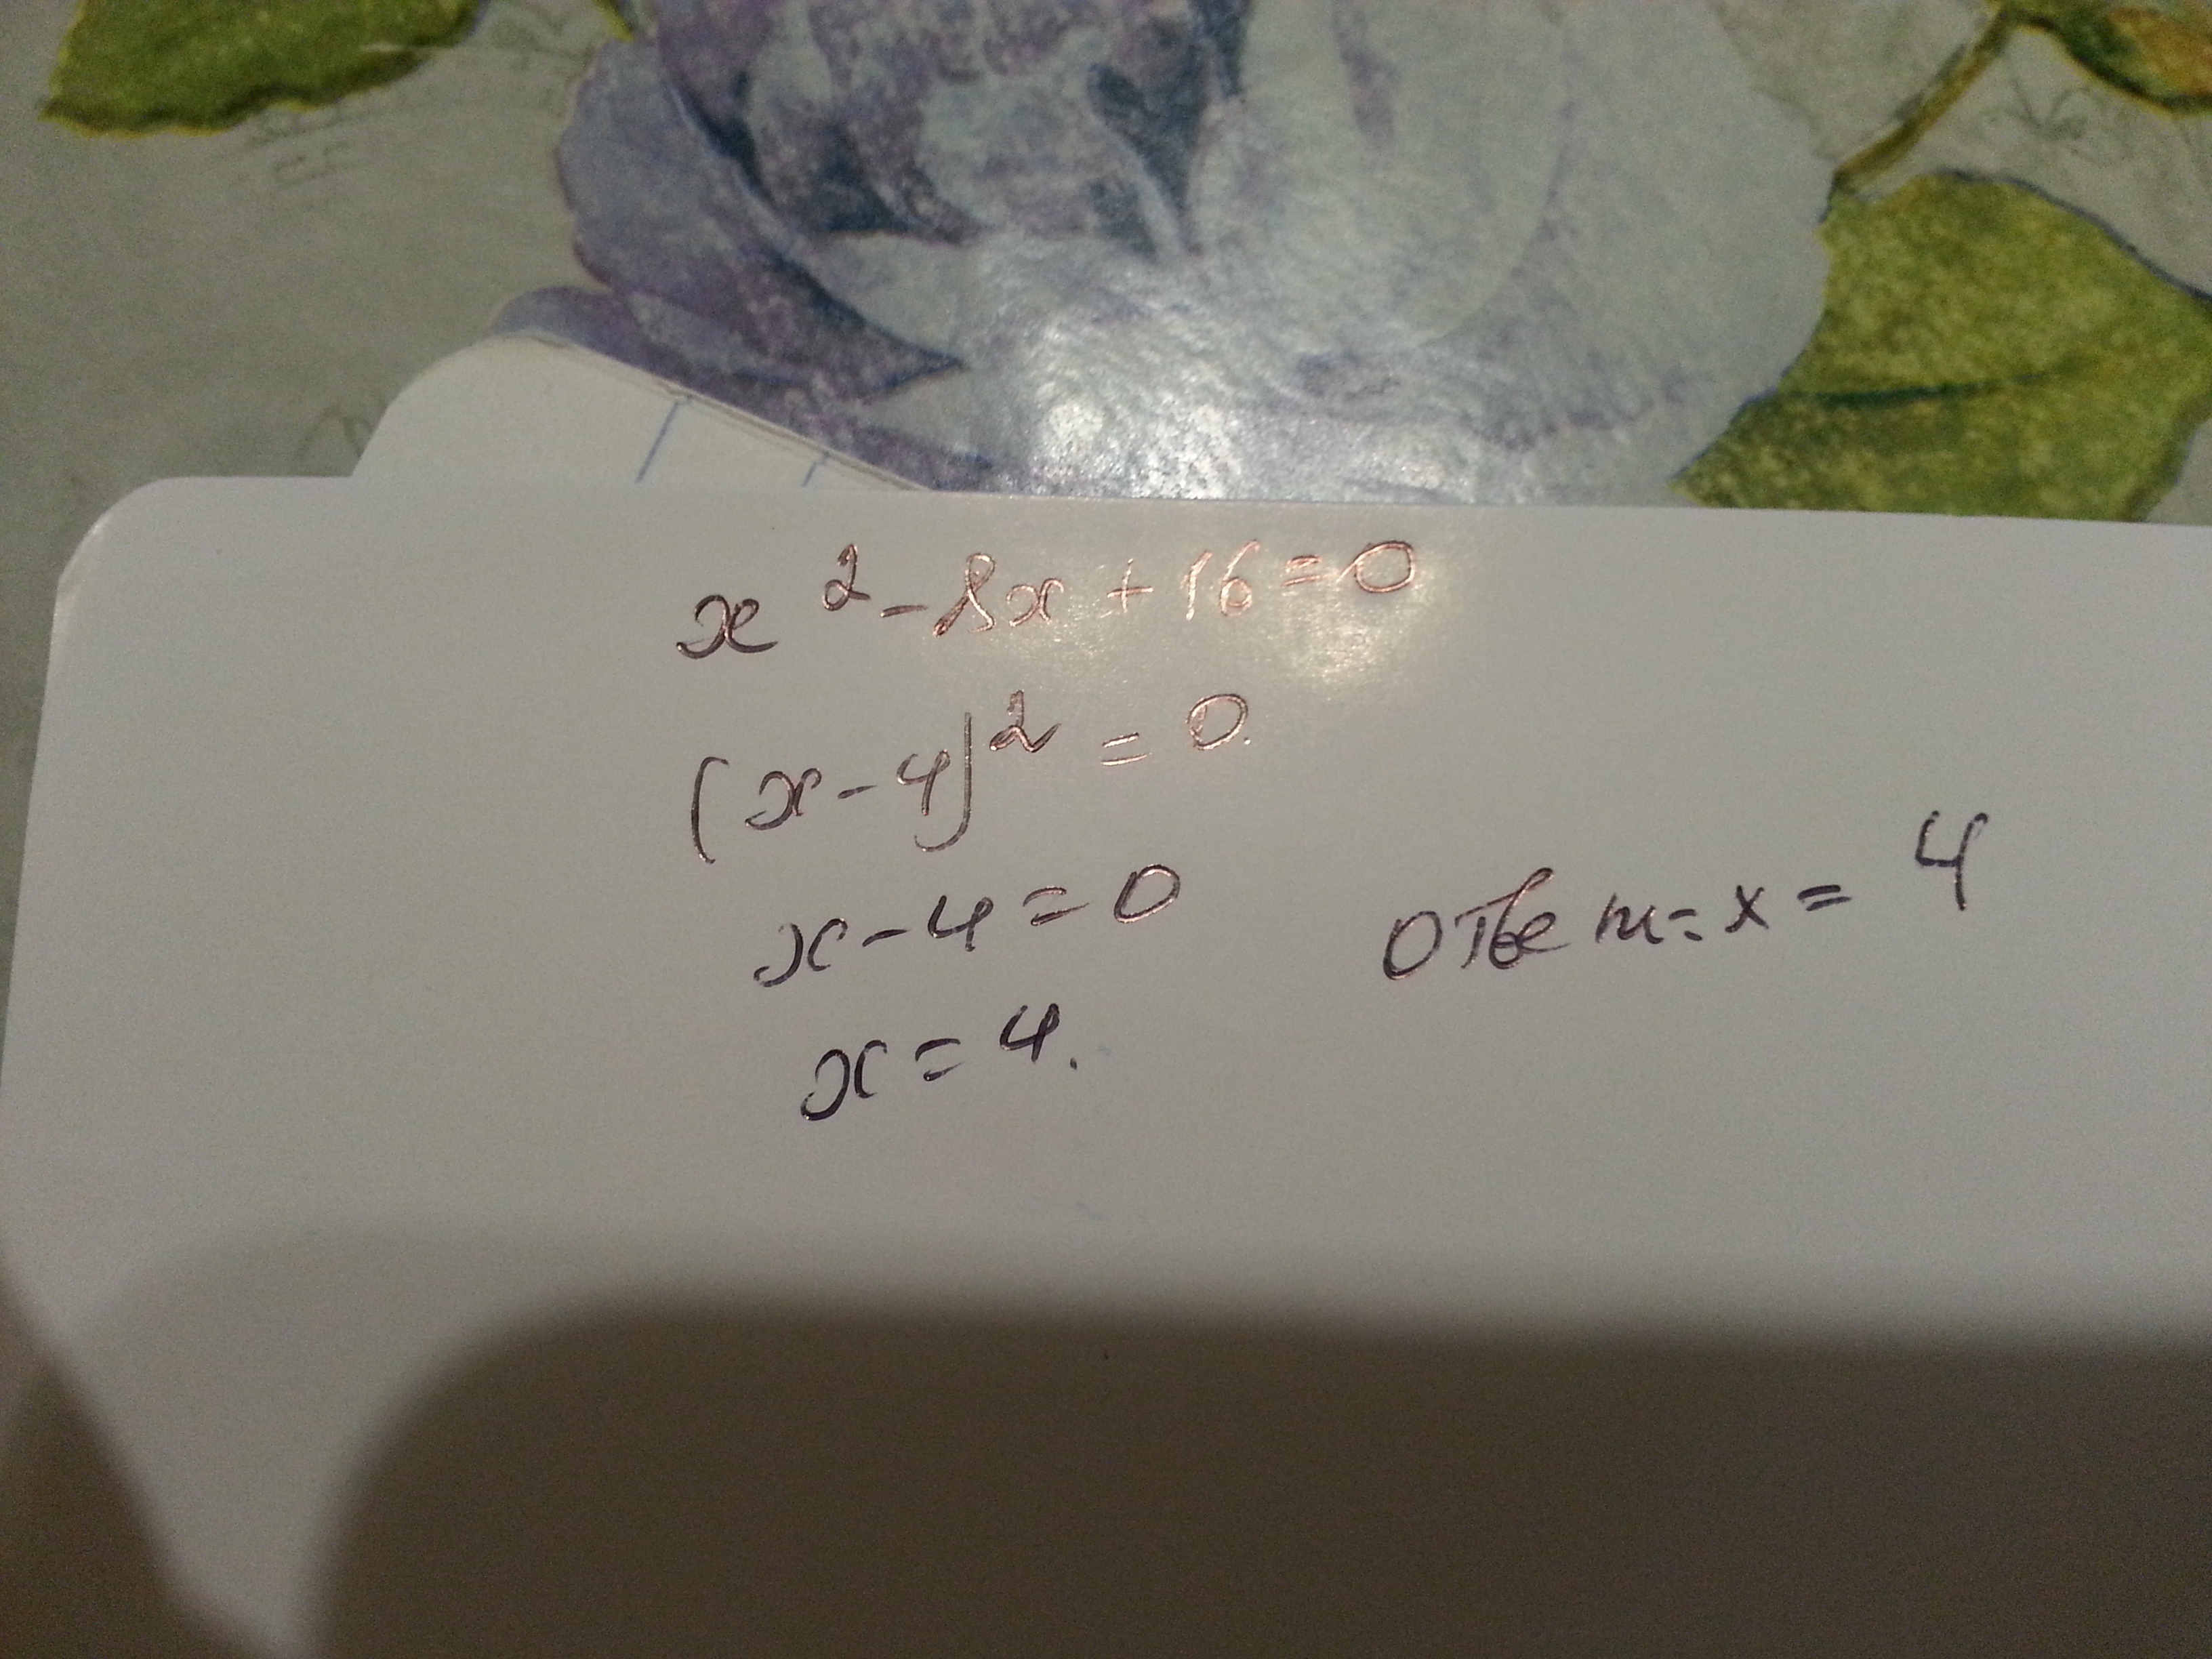 x² - 8x + 16 = 0
(x - 4)² = 0.
x - 4 = 0
x = 4.
Ответ: x = 4